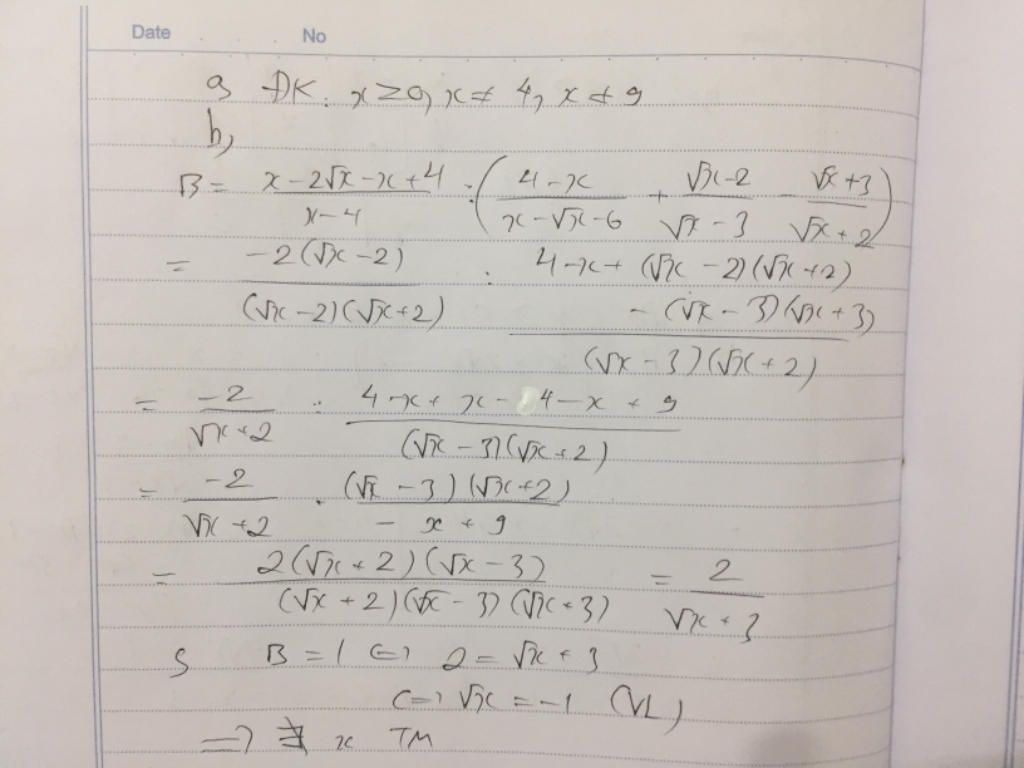 Date No
a, ĐK: x ≥ 0, x ≠ 4, x ≠ 9
b,
B = (x - 2√x - x + 4)/(x - 4) : ( (4 - x)/(x - √x - 6) + (√x - 2)/(√x - 3) - (√x + 3)/(√x + 2) )
= (-2(√x - 2))/((√x - 2)(√x + 2)) : (4 - x + (√x - 2)(√x + 2) - (√x - 3)(√x + 3))/((√x - 3)(√x + 2))
= (-2)/(√x + 2) : (4 - x + x - 4 - x + 9)/((√x - 3)(√x + 2))
= (-2)/(√x + 2) . ((√x - 3)(√x + 2))/(- x + 9)
= (2(√x + 2)(√x - 3))/((√x + 2)(√x - 3)(√x + 3)) = 2/(√x + 3)
c, B = 1 <=> 2 = √x + 3
<=> √x = -1 (VL)
=> ∄ x TM